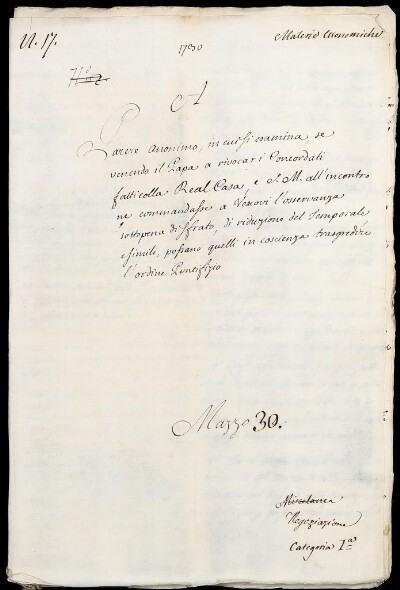 N. 17.
1730
Materie Economiche
A
Parere Anonimo, in cui si esamina, se
venendo il Papa a rivocar i Concordati
fatti colla Real Casa, e S. M. all'incontro
ne commandasse a Vescovi l'osservanza
sotto pena di sfrato, di riduzione del Temporale
e simili, possano quelli in coscienza trasgredire
l'ordine Pontifizio
Mazzo 30.
Miscelanea
Negoziazione
Categoria 1.a